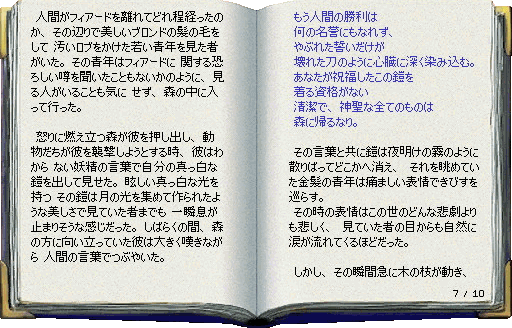 人間がフィアードを離れてどれ程経ったの
か、その辺りで美しいブロンドの髪の毛を
して 汚いロブをかけた若い青年を見た者
がいた。その青年はフィアードに 関する恐
ろしい噂を聞いたこともないかのように、見
る人がいることも気に せず、森の中に入
って行った。
怒りに燃え立つ森が彼を押し出し、動
物だちが彼を襲撃しようとする時、彼はわ
から ない妖精の言葉で自分の真っ白な
鎧を出して見せた。眩しい真っ白な光を
持つ その鎧は月の光を集めて作られたよ
うな美しさで見ていた者までも 一瞬息が
止まりそうな感じだった。しばらくの間、森
の方に向い立っていた彼は大きく嘆きなが
ら 人間の言葉でつぶやいた。
もう人間の勝利は
何の名誉にもなれず、
やぶれた誓いだけが
壊れた刀のように心臓に深く染み込む。
あなたが祝福したこの鎧を
着る資格がない
清潔で、神聖な全てのものは
森に帰るなり。
その言葉と共に鎧は夜明けの霧のように
散りばってどこかへ消え、 それを眺めてい
た金髪の青年は痛ましい表情できびすを
巡らす。
その時の表情はこの世のどんな悲劇より
も悲しく、 見ていた者の目からも自然に
涙が流れてくるほどだった。
しかし、その瞬間急に木の枝が動き、
7 / 10